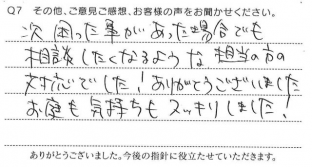 Q7 その他、ご意見ご感想、お客様の声をお聞かせください。
次困った事があった場合でも
相談したくなるような担当の方の
対応でした!ありがとうございました
お庭も気持ちもスッキリしました!
ありがとうございました。今後の指針に役立たせていただきます。